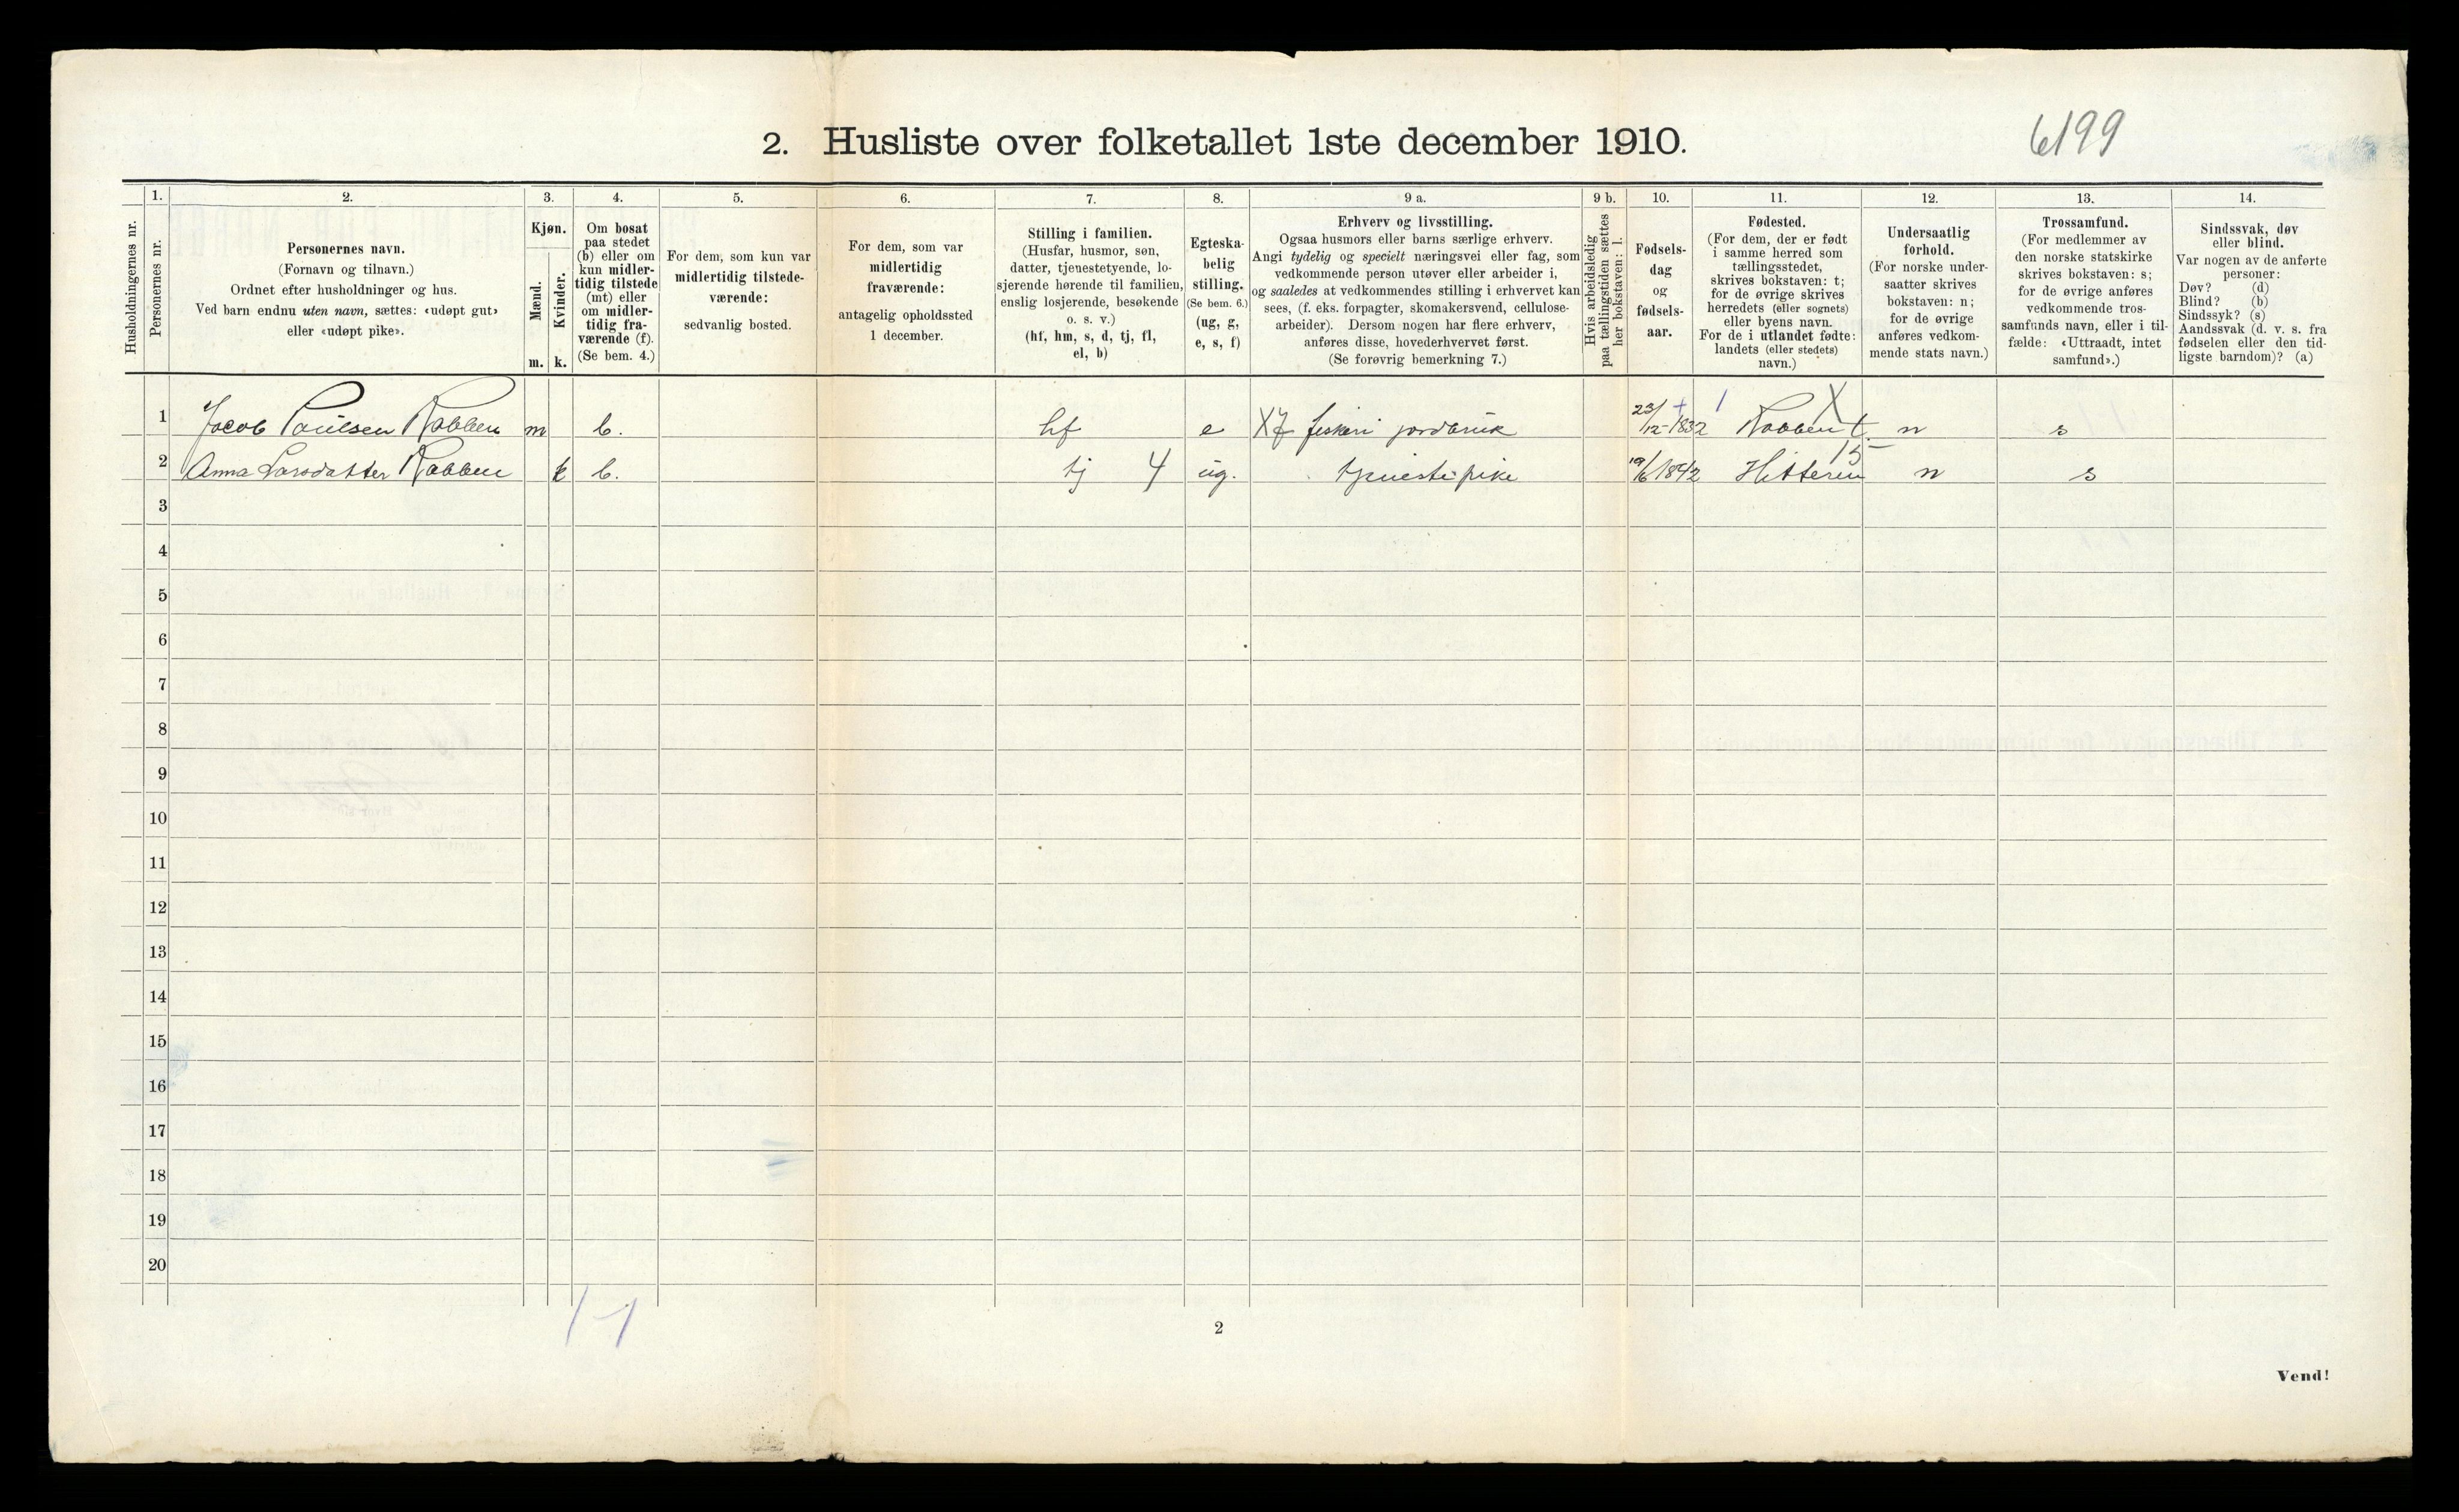 2. Husliste over folketallet 1ste december 1910.
6199
Husholdningernes nr.
1.
Personernes nr.
2.
Personernes navn.
(Fornavn og tilnavn.)
Ordnet efter husholdninger og hus.
Ved barn endnu uten navn, sættes: «udøpt gut»
eller «udøpt pike».
3.
Kjøn.
Mænd.
Kvinder.
m. k.
4.
Om bosat
paa stedet
(b) eller om
kun midler-
tidig tilstede
(mt) eller
om midler-
tidig fra-
værende (f).
(Se bem. 4.)
5.
For dem, som kun var
midlertidig tilstede-
værende:
sedvanlig bosted.
6.
For dem, som var
midlertidig
fraværende:
antagelig opholdssted
1 december.
7.
Stilling i familien.
(Husfar, husmor, søn,
datter, tjenestetyende, lo-
sjerende hørende til familien,
enslig losjerende, besøkende
o. s. v.)
(hf, hm, s, d, tj, fl,
el, b)
8.
Egteska-
belig
stilling.
(Se bem. 6.)
(ug, g,
e, s, f)
9 a.
Erhverv og livsstilling.
Ogsaa husmors eller barns særlige erhverv.
Angi tydelig og specielt næringsvei eller fag, som
vedkommende person utøver eller arbeider i,
og saaledes at vedkommendes stilling i erhvervet kan
sees, (f. eks. forpagter, skomakersvend, cellulose-
arbeider). Dersom nogen har flere erhverv,
anføres disse, hovederhvervet først.
(Se forøvrig bemerkning 7.)
9 b.
Hvis arbeidsledig
paa tællingstiden sættes
her bokstaven: l.
10.
Fødsels-
dag
og
fødsels-
aar.
11.
Fødested.
(For dem, der er født
i samme herred som
tællingsstedet,
skrives bokstaven: t;
for de øvrige skrives
herredets (eller sognets)
eller byens navn.
For de i utlandet fødte:
landets (eller stedets)
navn.)
12.
Undersaatlig
forhold.
(For norske under-
saatter skrives
bokstaven: n;
for de øvrige
anføres vedkom-
mende stats navn.)
13.
Trossamfund.
(For medlemmer av
den norske statskirke
skrives bokstaven: s;
for de øvrige anføres
vedkommende tros-
samfunds navn, eller i til-
fælde: «Uttraadt, intet
samfund».)
14.
Sindssvak, døv
eller blind.
Var nogen av de anførte
personer:
Døv? (d)
Blind? (b)
Sindssyk? (s)
Aandssvak (d. v. s. fra
fødselen eller den tid-
ligste barndom)? (a)
1 Jacob Paulsen Rabben m b. hf e X7 fiskeri jordbruk 23/12-1832 + 1 Rabben t. X n s
2 Anna Larsdatter Rabben k b. tj 4 ug. tjeneste pike 19/6 1842 Hitteren 15 n s
3
4
5
6
7
8
9
10
11
12
13
14
15
16
17
18
19
20
1-1
2
Vend!